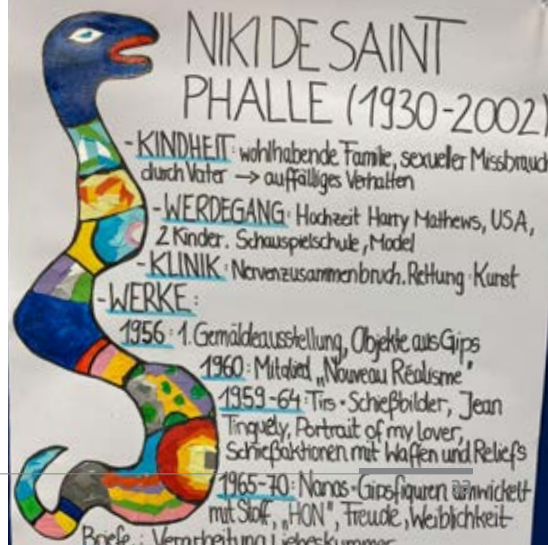 NIKI DE SAINT
PHALLE (1930-2002)
- KINDHEIT: wohlhabende Familie, sexueller Missbrauch
durch Vater → auffälliges Verhalten
- WERDEGANG: Hochzeit Harry Mathews, USA,
2 Kinder. Schauspielschule, Model
- KLINIK: Nervenzusammenbruch. Rettung: Kunst
- WERKE:
1956: 1. Gemäldeausstellung, Objekte aus Gips
1960: Mitglied „Nouveau Réalisme"
1959-64: Tirs • Schießbilder, Jean
Tinguely, Portrait of my lover,
Schießaktionen mit Waffen und Reliefs
1965-70: Nanas • Gipsfiguren umwickelt
mit Stoff, „HON", Freude, Weiblichkeit
Briefe.: Verarbeitung Liebeskummer